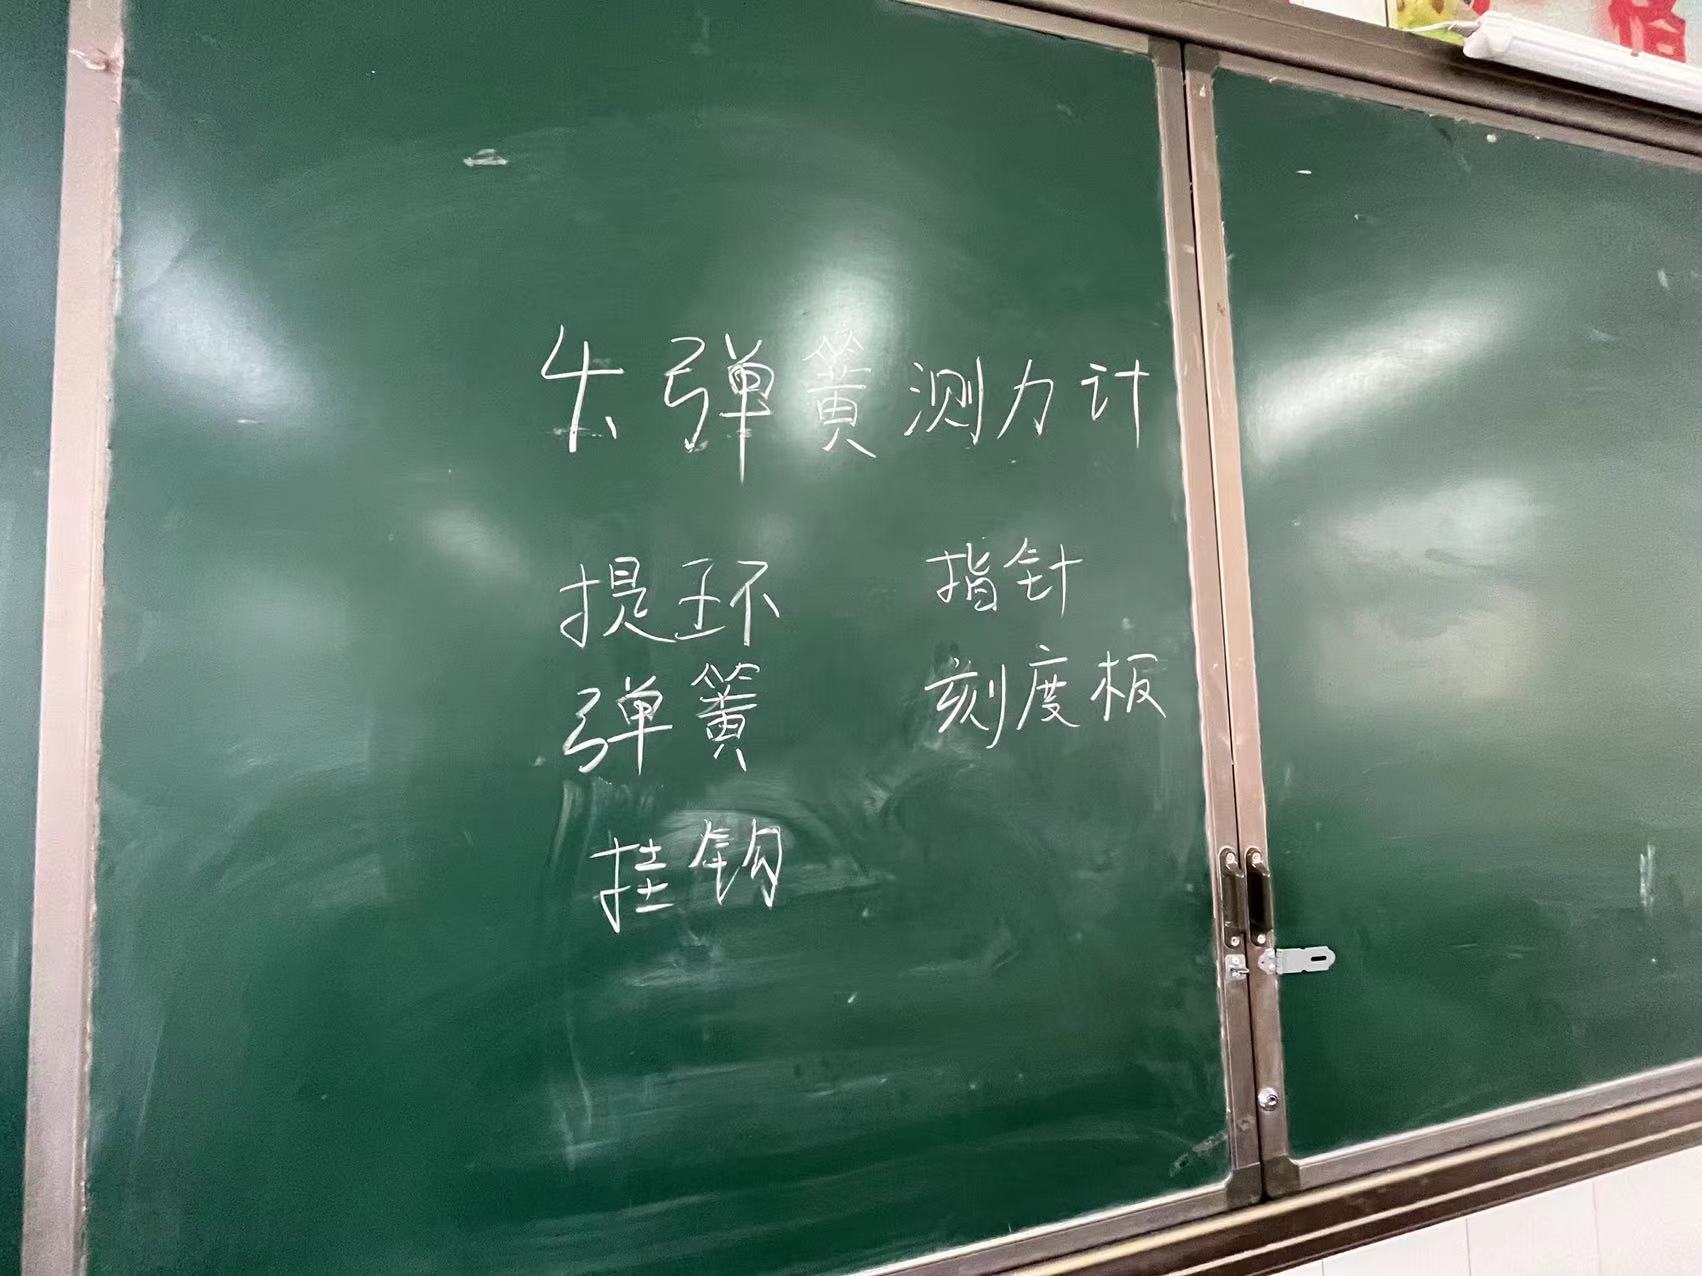 4、弹簧测力计
提环 指针
弹簧 刻度板
挂钩